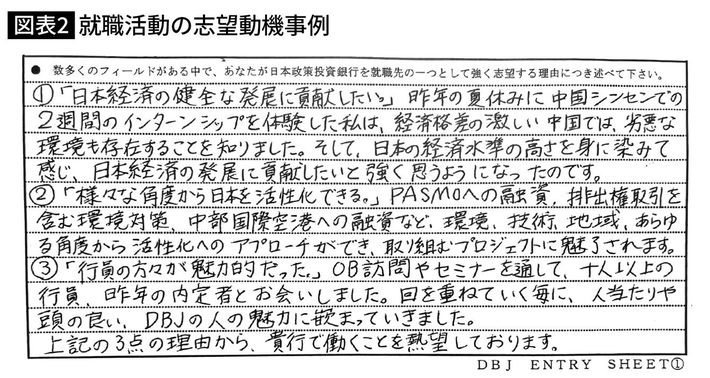 図表2 就職活動の志望動機事例
● 数多くのフィールドがある中で、あなたが日本政策投資銀行を就職先の一つとして強く志望する理由につき述べて下さい。
①「日本経済の健全な発展に貢献したい。」昨年の夏休みに中国シンセンでの
2週間のインターンシップを体験した私は、経済格差の激しい中国では、劣悪な
環境も存在することを知りました。そして、日本の経済水準の高さを身に染みて
感じ、日本経済の発展に貢献したいと強く思うようになったのです。
②「様々な角度から日本を活性化できる。」PASMOへの融資、排出権取引を
含む環境対策、中部国際空港への融資など、環境、技術、地域、あらゆ
る角度から活性化へのアプローチができ、取り組むプロジェクトに魅了されます。
③「行員の方々が魅力的だった。」OB訪問やセミナーを通して、十人以上の
行員、昨年の内定者とお会いしました。回を重ねていく毎に、人当たりや
頭の良い、DBJの人の魅力に嵌まっていきました。
上記の3点の理由から、貴行で働くことを熱望しております。
DBJ ENTRY SHEET①